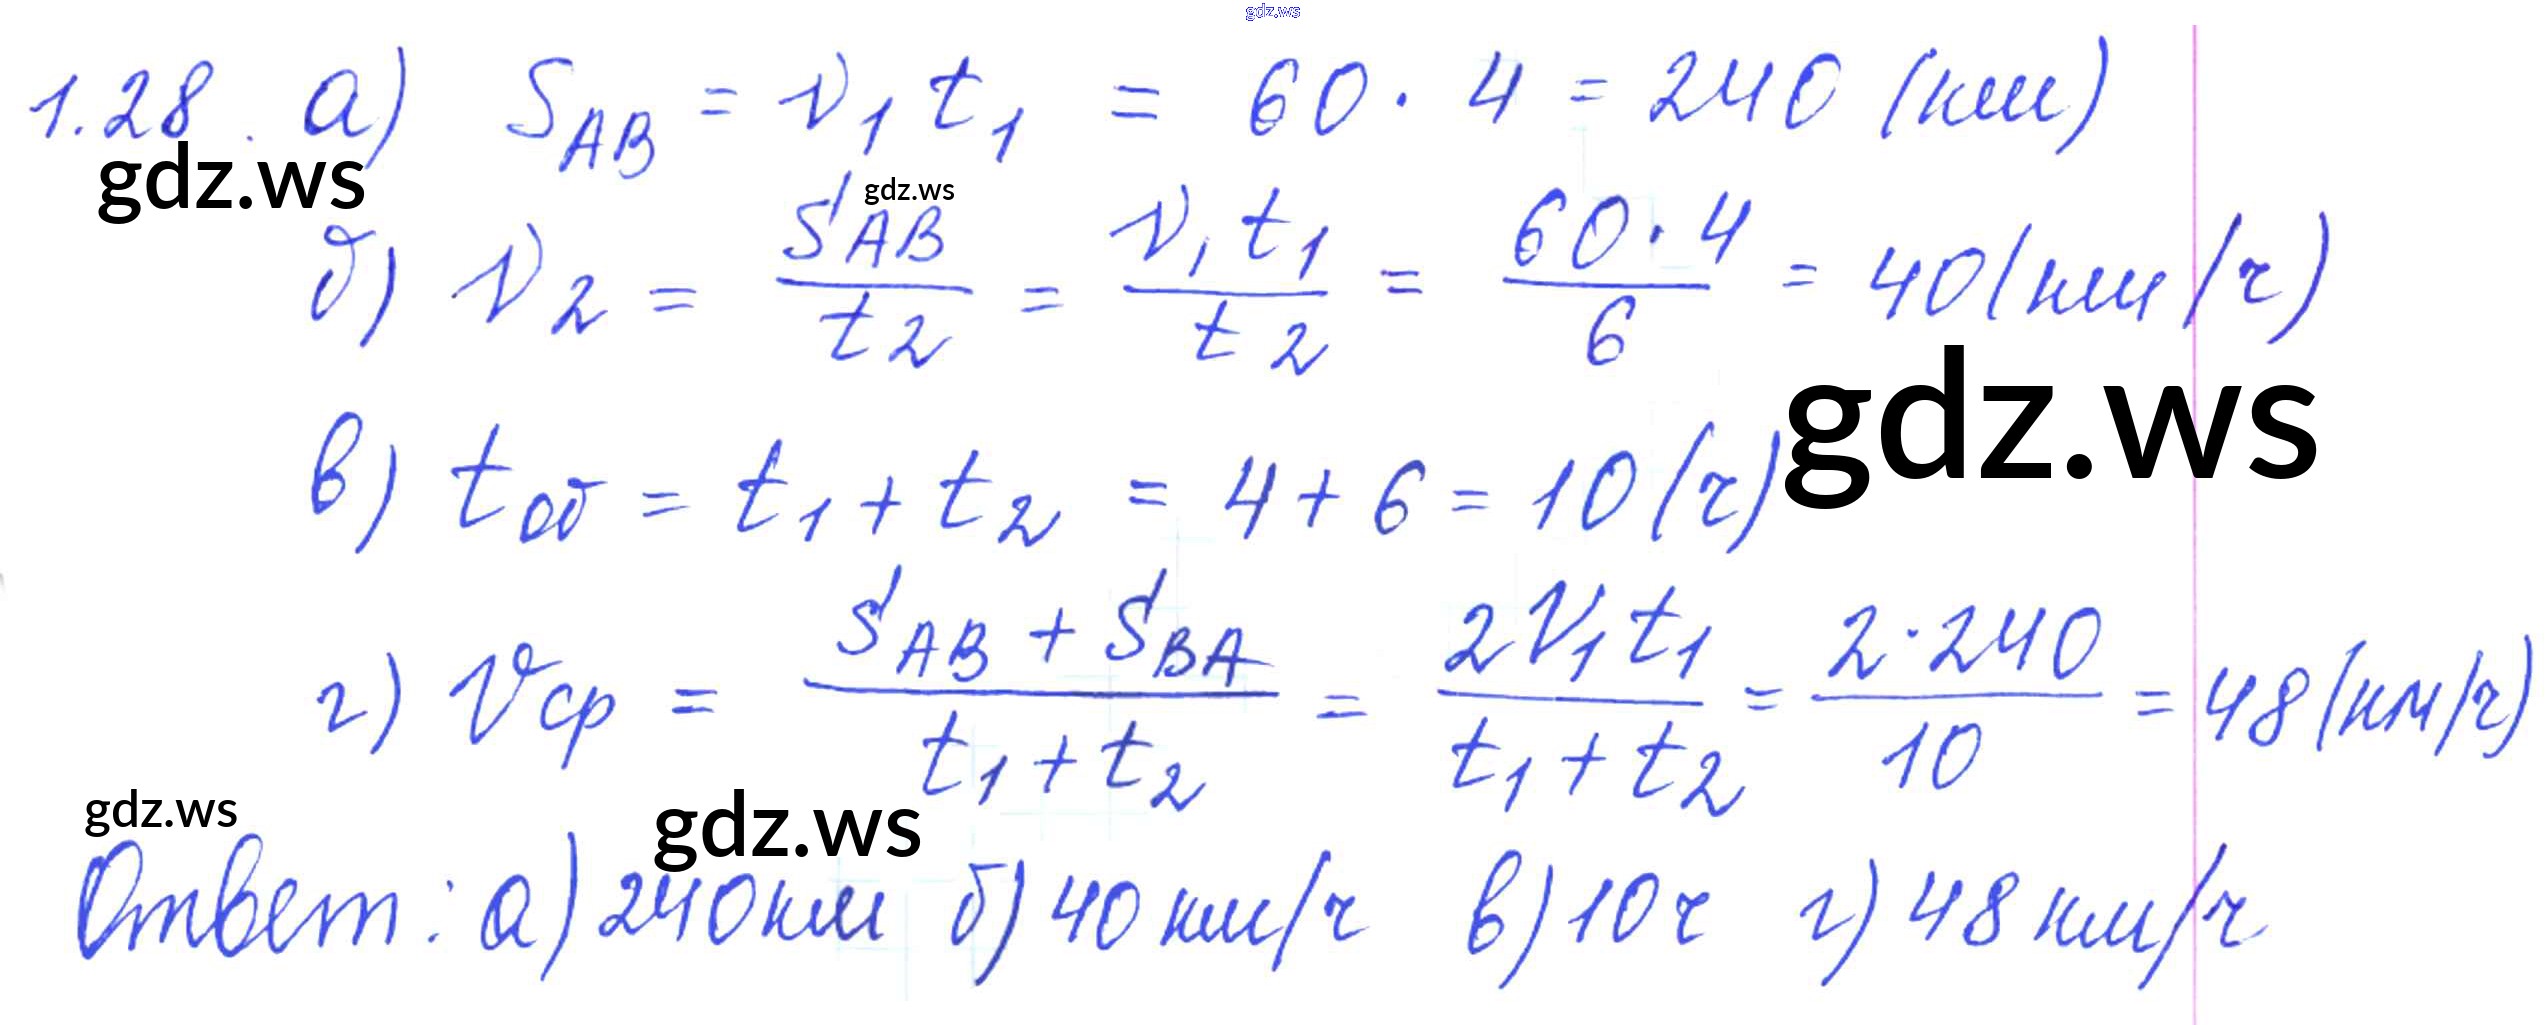 gdz.ws
1.28. а) S_AB = v₁ t₁ = 60 · 4 = 240 (км)
gdz.ws gdz.ws
б) v₂ = S_AB / t₂ = v₁ t₁ / t₂ = 60 · 4 / 6 = 40 (км/ч)
gdz.ws
в) t_об = t₁ + t₂ = 4 + 6 = 10 (ч)
г) v_ср = (S_AB + S_BA) / (t₁ + t₂) = 2 v₁ t₁ / (t₁ + t₂) = 2 · 240 / 10 = 48 (км/ч)
gdz.ws gdz.ws
Ответ: а) 240 км б) 40 км/ч в) 10 ч г) 48 км/ч